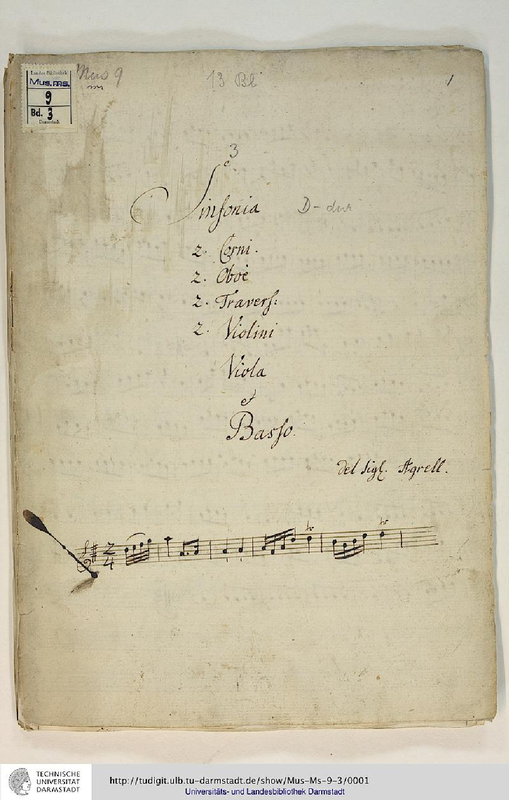 Landes-Bibliothek
Mus. ms.
9
Bd. 3
Darmstadt
Mus 9
13 Bl
1
3
Sinfonia D-dur
2. Corni.
2. Oboe
2. Travers:
2. Violini
Viola
et
Basso.
del Sigl. Agrell.
2
4
tr tr
TECHNISCHE
UNIVERSITÄT
DARMSTADT
http://tudigit.ulb.tu-darmstadt.de/show/Mus-Ms-9-3/0001
Universitäts- und Landesbibliothek Darmstadt